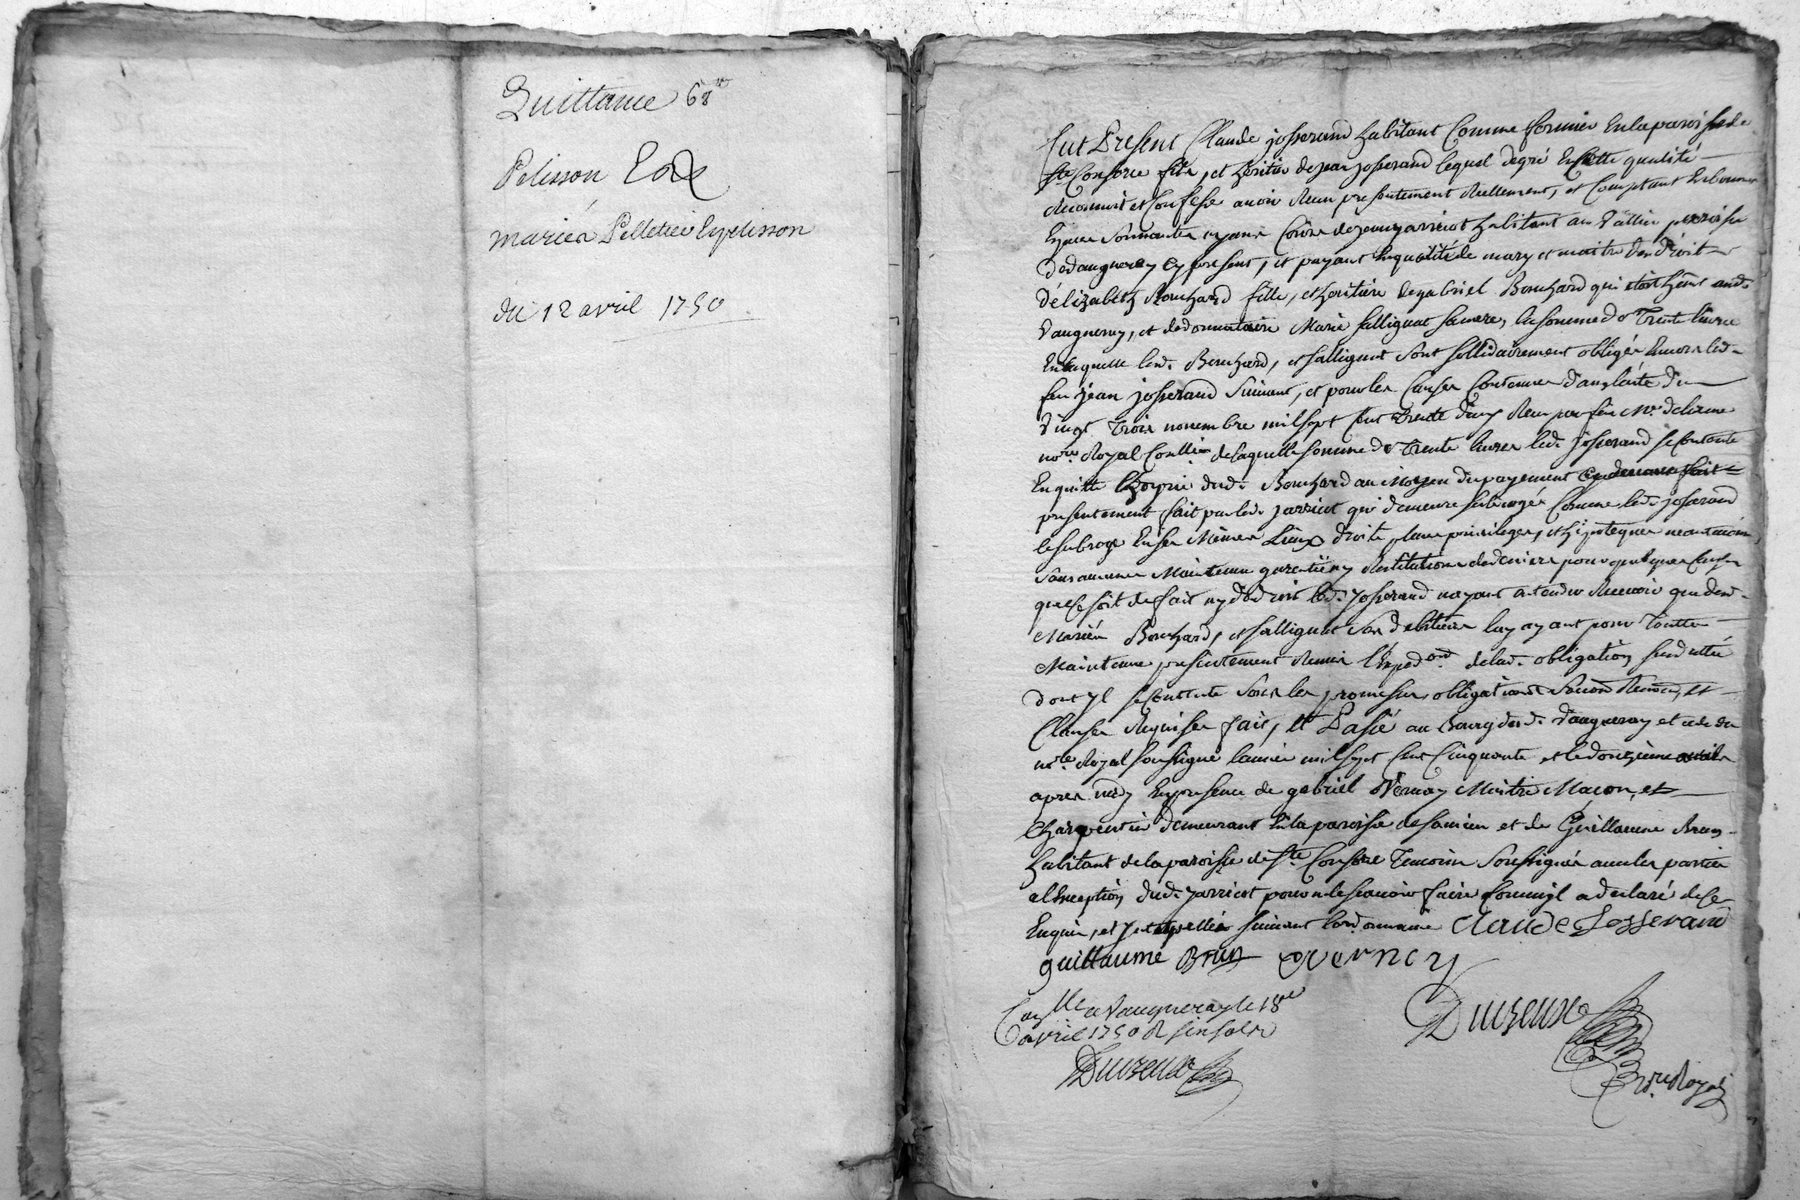 Quittance 68
Pelisson
mariéa Pelletier Epelisson
du 12 avril 1750
fut Present Claude josserand habitant Comme fermier En la paroisse de
ste Consorce fils, et heritier de jean josserand lequel de gré En cette qualité
reconnoit et Confesse avoir Reçu presentement Reellement, et Comptant En bonnes
Especes Sonnantes ayant Cours de jean jarricot habitant au paroisse
de vaugneray Cy present, et payant En qualité de mary et maitre des droits
d'élizabeth Bouchard fille, et heritiere de gabriel Bouchard qui etoit hôte aud.
vaugneray, et de donnataire Marie falliguat sa mere, la somme de Trente livres
En laquelle lesd. Bouchard, et falliguat Sont sollidairement obligés Envers led.
feu jean josserand Suivant, et pour les Causes Contenues dans l'acte du
vingt Trois novembre mil sept Cent Trente deux Reçu par feu Me. delorme
nore. Royal de laquelle somme de Trente livres led. josserand se Contente
En quitte l'hoyrie dud. Bouchard au Moyen du payement
presentement fait par led. jarricot qui demeure subrogé Comme led. josserand
le subroge En ses Mêmes Lieux droits, places privileges, et hipoteques neantmoins
Sans aucune Maintenue garentie ny Restitution de deniers pour quelques Causes
que Ce soit de fait ny de droit led. josserand n'ayant entendu Recevoir que des d.
Mariés Bouchard, et falliguat Ses debiteurs luy ayant pour Toutte
Maintenue presentement Remis l'Expedon. de lad. obligation
dont yl se Contente Sous les promesses obligations et
Clauses Requises fait, et Passé au Bourg dud. vaugneray
nore. Royal soussigné l'année mil sept Cent Cinquante et le douzieme avril
apres midy En presence de gabriel Overnay Maitre Macon, et
Charpentier demeurant En la paroisse de et de Guillaume Brun
habitant de la paroisse de ste. Consorce Temoins Soussignés avec les parties
a l'Exception dud. jarricot pour ne le scavoir faire Comme yl a declaré de Ce
Enquis, et suivant l'ordonnance Claude Josserand
guillaume Brun overnay
Conllé a vaugneray le 18e
avril 1750 R six sols
Duizeux
Duizeux
nre Royal